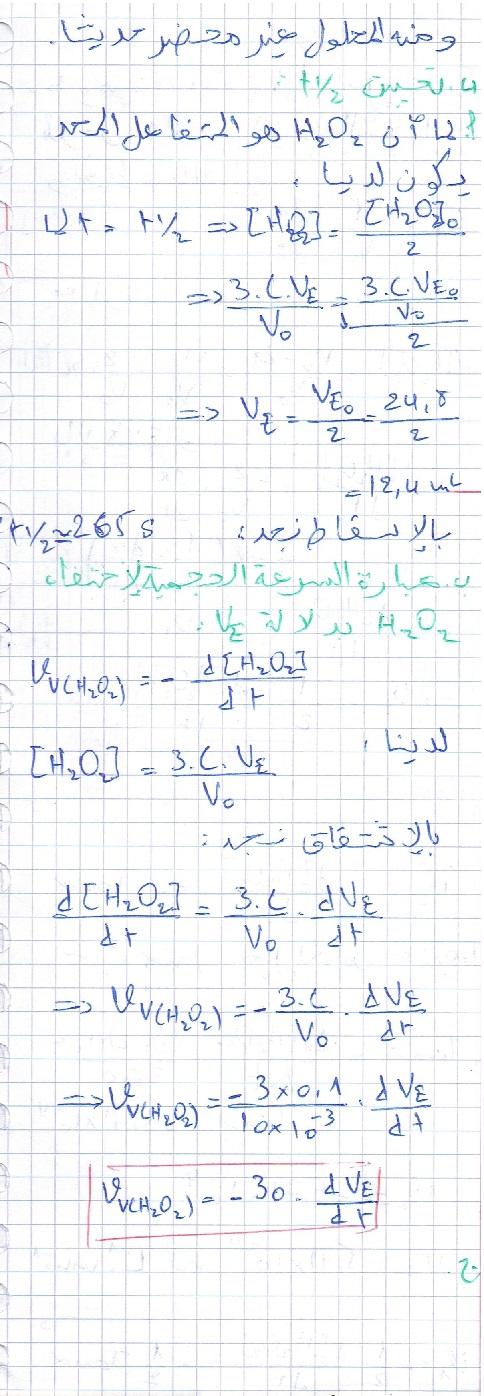 ومنه المحلول غير محضر حديثا.
4. تعيين t1/2:
أ. بما أن H₂O₂ هو المتفاعل المحد
يكون لدينا:
لما t = t1/2 => [H₂O₂] = [H₂O₂]₀ / 2
=> 3.C.V_E / V₀ = (3.C.V_E₀ / V₀) / 2
=> V_E = V_E₀ / 2 = 24,8 / 2
= 12,4 mL
بالإسقاط نجد: t1/2 ≈ 265 s
ب. عبارة السرعة الحجمية لإختفاء
H₂O₂ بدلالة V_E:
v_V(H₂O₂) = - d[H₂O₂] / dt
لدينا:
[H₂O₂] = 3.C.V_E / V₀
بالإشتقاق نجد:
d[H₂O₂] / dt = 3.C / V₀ . dV_E / dt
=> v_V(H₂O₂) = - 3.C / V₀ . dV_E / dt
=> v_V(H₂O₂) = - 3×0,1 / 10×10⁻³ . dV_E / dt
v_V(H₂O₂) = - 30 . dV_E / dt